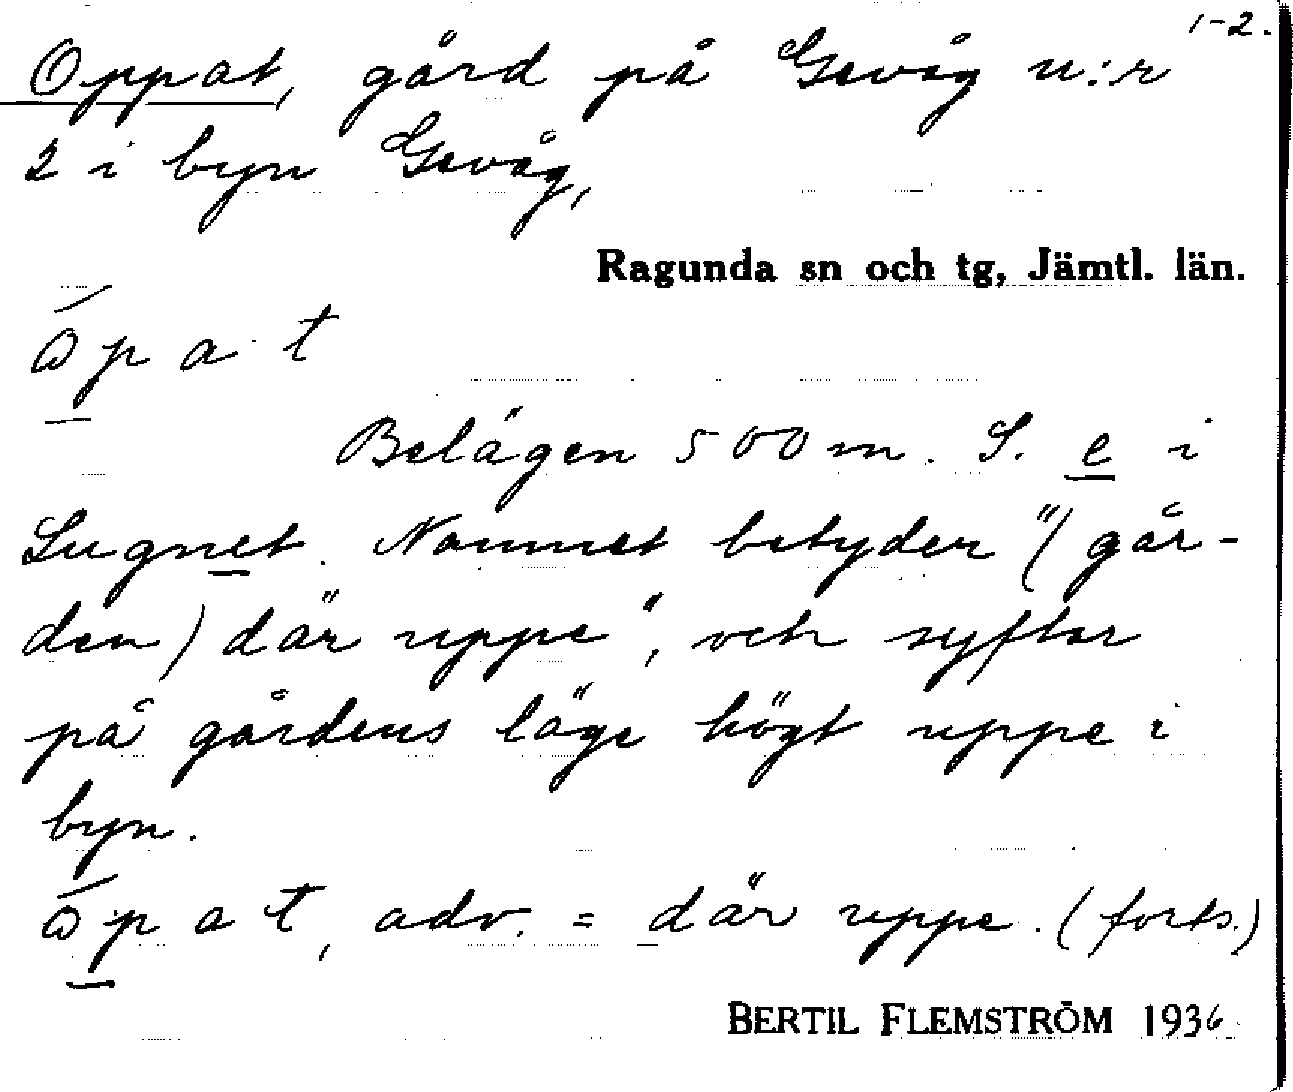 1-2.
Oppat, gård på Gevåg n:r
2 i byn Gevåg,
Ragunda sn och tg, Jämtl. län.
ɷ́ p a t
Belägen 500 m. S. e i
Lugnet. Namnet betyder "(går-
den) där uppe", och syftar
på gårdens läge högt uppe i
byn.
ɷ́ p a t, adv. = där uppe. (forts.)
BERTIL FLEMSTRÖM 1936